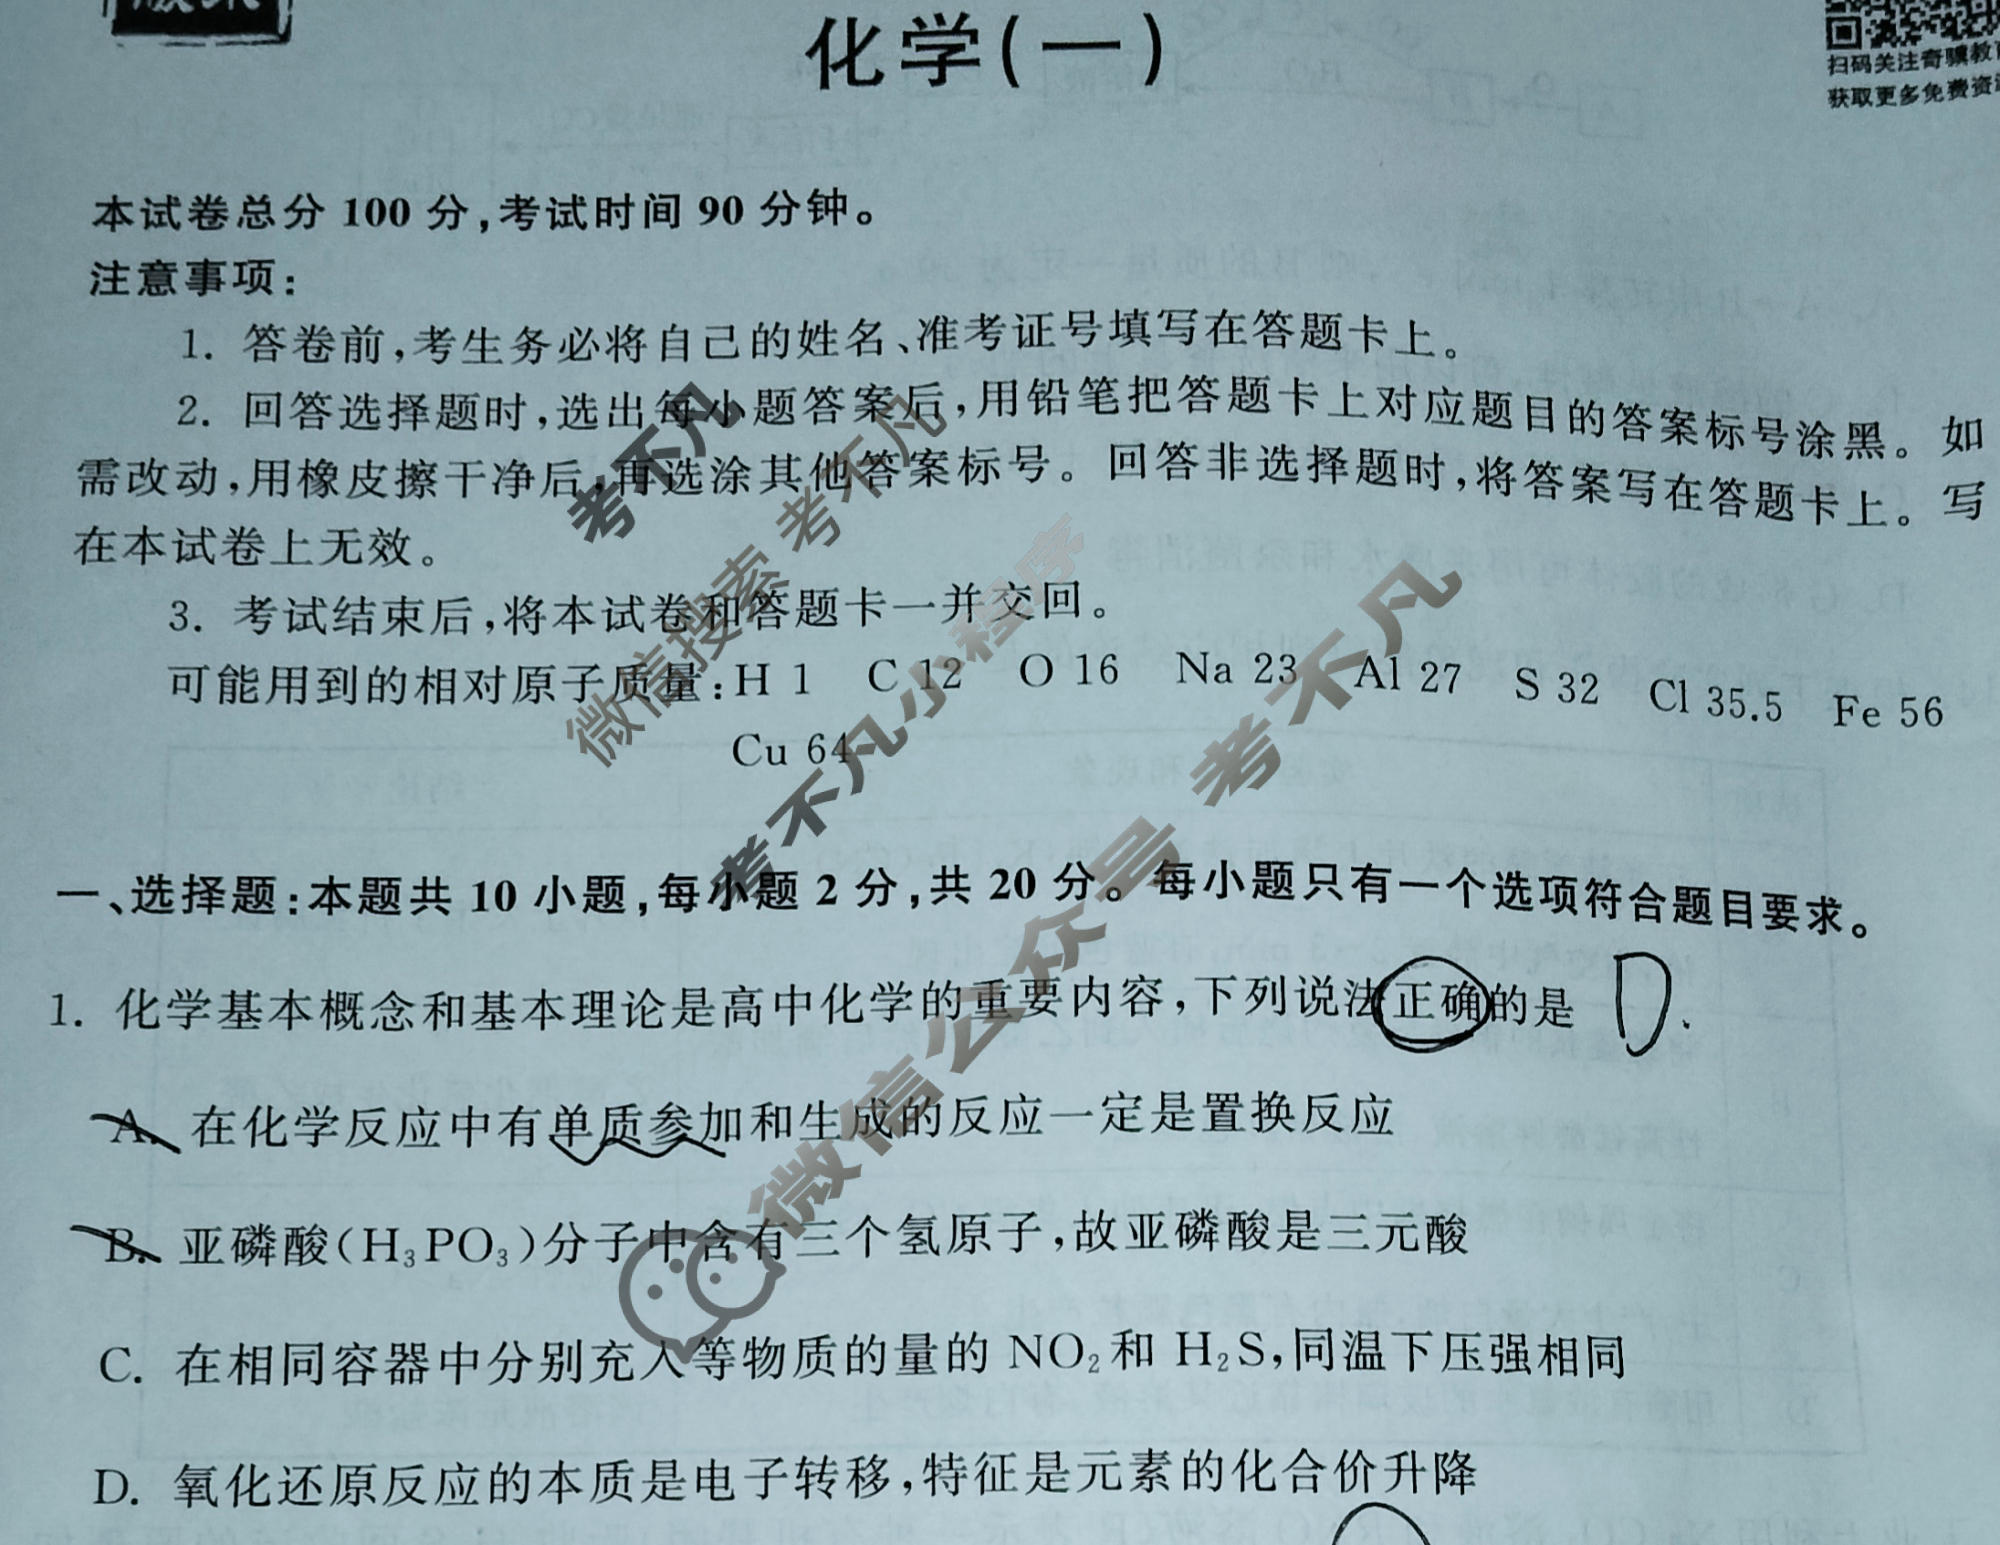 化学(一)
扫码关注奇骥教育
获取更多免费资
本试卷总分 100 分,考试时间 90 分钟。
注意事项:
1. 答卷前,考生务必将自己的姓名、准考证号填写在答题卡上。
2. 回答选择题时,选出每小题答案后,用铅笔把答题卡上对应题目的答案标号涂黑。如
需改动,用橡皮擦干净后,再选涂其他答案标号。回答非选择题时,将答案写在答题卡上。写
在本试卷上无效。
3. 考试结束后,将本试卷和答题卡一并交回。
可能用到的相对原子质量:H 1 C 12 O 16 Na 23 Al 27 S 32 Cl 35.5 Fe 56
Cu 64
一、选择题:本题共 10 小题,每小题 2 分,共 20 分。每小题只有一个选项符合题目要求。
1. 化学基本概念和基本理论是高中化学的重要内容,下列说法正确的是 D.
A. 在化学反应中有单质参加和生成的反应一定是置换反应
B. 亚磷酸(H₃PO₃)分子中含有三个氢原子,故亚磷酸是三元酸
C. 在相同容器中分别充入等物质的量的 NO₂和 H₂S,同温下压强相同
D. 氧化还原反应的本质是电子转移,特征是元素的化合价升降
考不凡
微信搜索 考不凡
考不凡小程序
微信公众号 考不凡